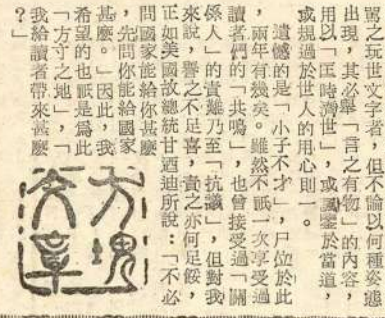 罵之玩世文字者，但不論以何種姿態
出現，其必舉「言之有物」的內容，
用以「匡時濟世」，或國鑒於當道，
或規過於世人的用心則一。
遺憾的是「小子不才」，尸位於此
，兩年有幾矣。雖然不祇一次享受過
讀者們的「共鳴」，也曾接受過「關
係人」的責難乃至「抗議」，但對我
來說，譽之不足喜，責之亦何足餒，
正如美國故總統甘迺迪所說：「不必
問國家能給你甚麼，先問你能給國家
甚麼。」因此，我
希望的也祇是爲此
「方寸之地」，「
我給讀者帶來甚麼
？」
方塊
文章